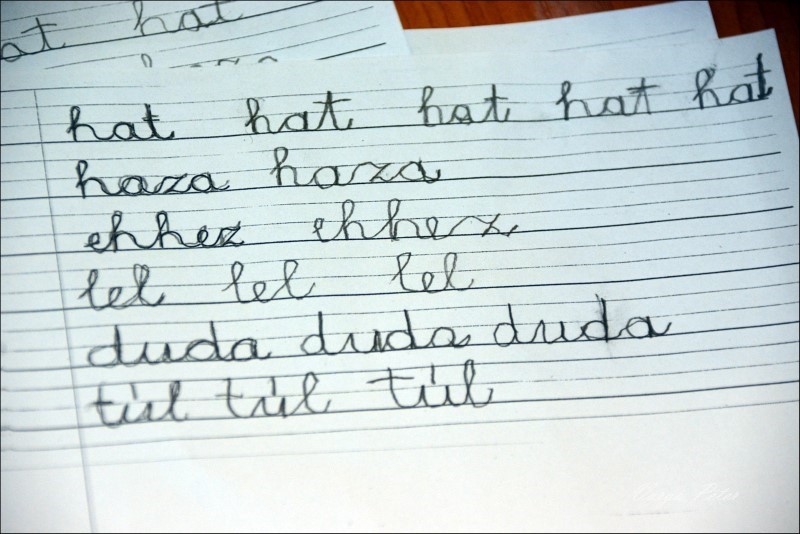 at hat
hat hat hat hat hat
haza haza
ehhez ehhez
lel lel lel
duda duda duda
túl túl túl